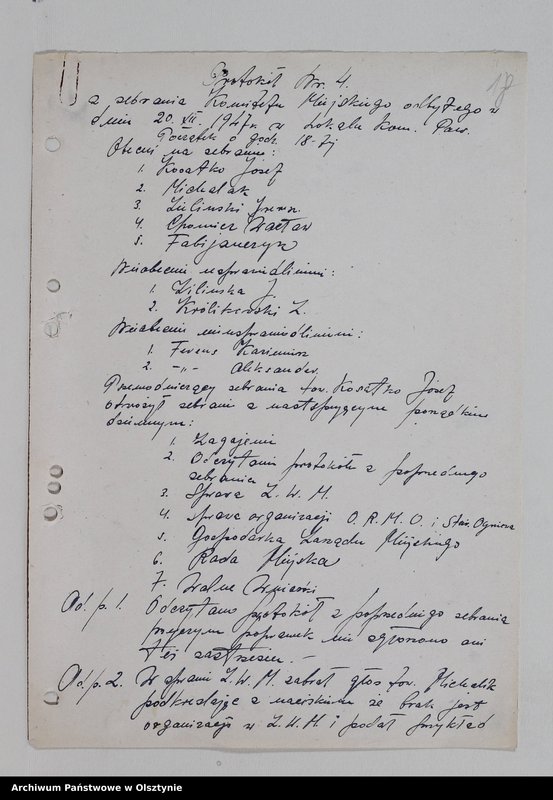 17
Protokół Nr. 4.
z zebrania Komitetu Miejskiego odbytego w
dniu 20.XII 1947 r. w Lokalu Kom. Pow.
Początek o godz. 18-tej
Obecni na zebraniu:
1. Kosatko Józef
2. Michalak
3. Zieliński
4. Wacław
5. Fabijańczyk
Nieobecni usprawiedliwieni:
1. Zielińska J.
2. Królikowski Z.
Nieobecni nieusprawiedliwieni:
1. Ferens Kazimierz
2. -„- Aleksander
Przewodniczący zebrania tow. Kosatko Józef
otworzył zebranie z następującym porządkiem
dziennym:
1. Zagajenie
2. Odczytanie protokołu z poprzedniego
zebrania
3. Sprawa Z.W.M.
4. Sprawa organizacji O.R.M.O. i
5. Gospodarka Zarządu Miejskiego
6. Rada Miejska
7. Wolne Wnioski
Ad. p. 1. Odczytano protokół z poprzedniego zebrania
przyczym poprawek nie zgłoszono ani
też zastrzeżeń. –
Ad. p. 2. W sprawie Z.W.M. zabrał głos tow. Michalak
podkreślając z naciskiem że brak jest
organizacji w Z.W.M i podał przykład
Archiwum Państwowe w Olsztynie